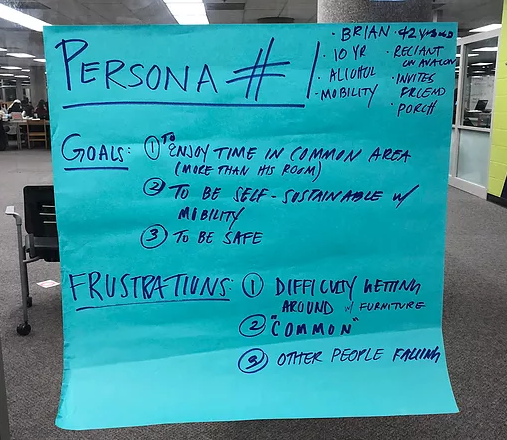 PERSONA # 1
· BRIAN
· 10 YR
· ALCOHOL
· MOBILITY
· RELIANT
ON AVALON
· INVITES
FRIEND
· PORCH
GOALS: ① TO ENJOY TIME IN COMMON AREA
(MORE THAN HIS ROOM)
② TO BE SELF-SUSTAINABLE w/
MOBILITY
③ TO BE SAFE
FRUSTRATIONS: ① DIFFICULTY GETTING
AROUND w/ FURNITURE
② "COMMON"
③ OTHER PEOPLE FALLING